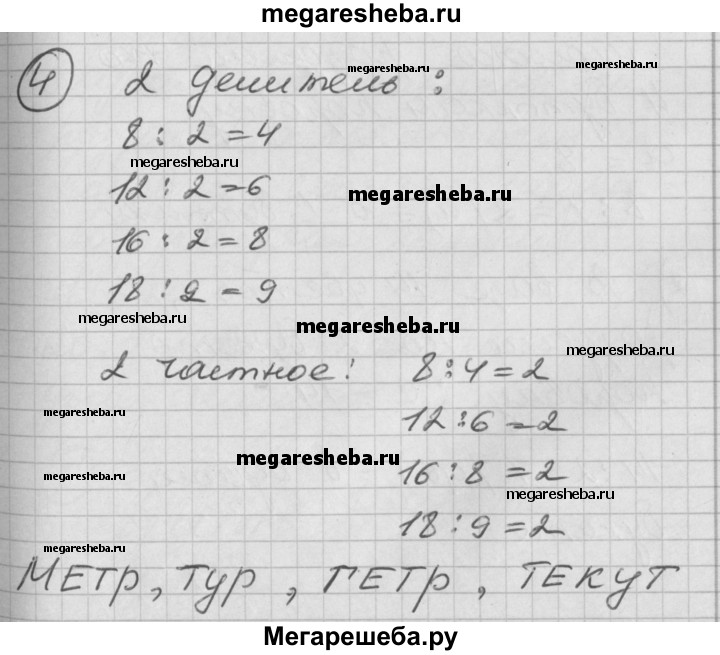 megaresheba.ru
4 2 делитель:
megaresheba.ru megaresheba.ru
8 : 2 = 4
megaresheba.ru
12 : 2 = 6
megaresheba.ru
16 : 2 = 8
18 : 2 = 9
megaresheba.ru
megaresheba.ru
megaresheba.ru
2 частное: 8 : 4 = 2
megaresheba.ru
12 : 6 = 2
megaresheba.ru
16 : 8 = 2
megaresheba.ru
18 : 9 = 2
megaresheba.ru
МЕТР, ТУР, ГЕТР, ТЕКУТ
Мегарешеба.ру